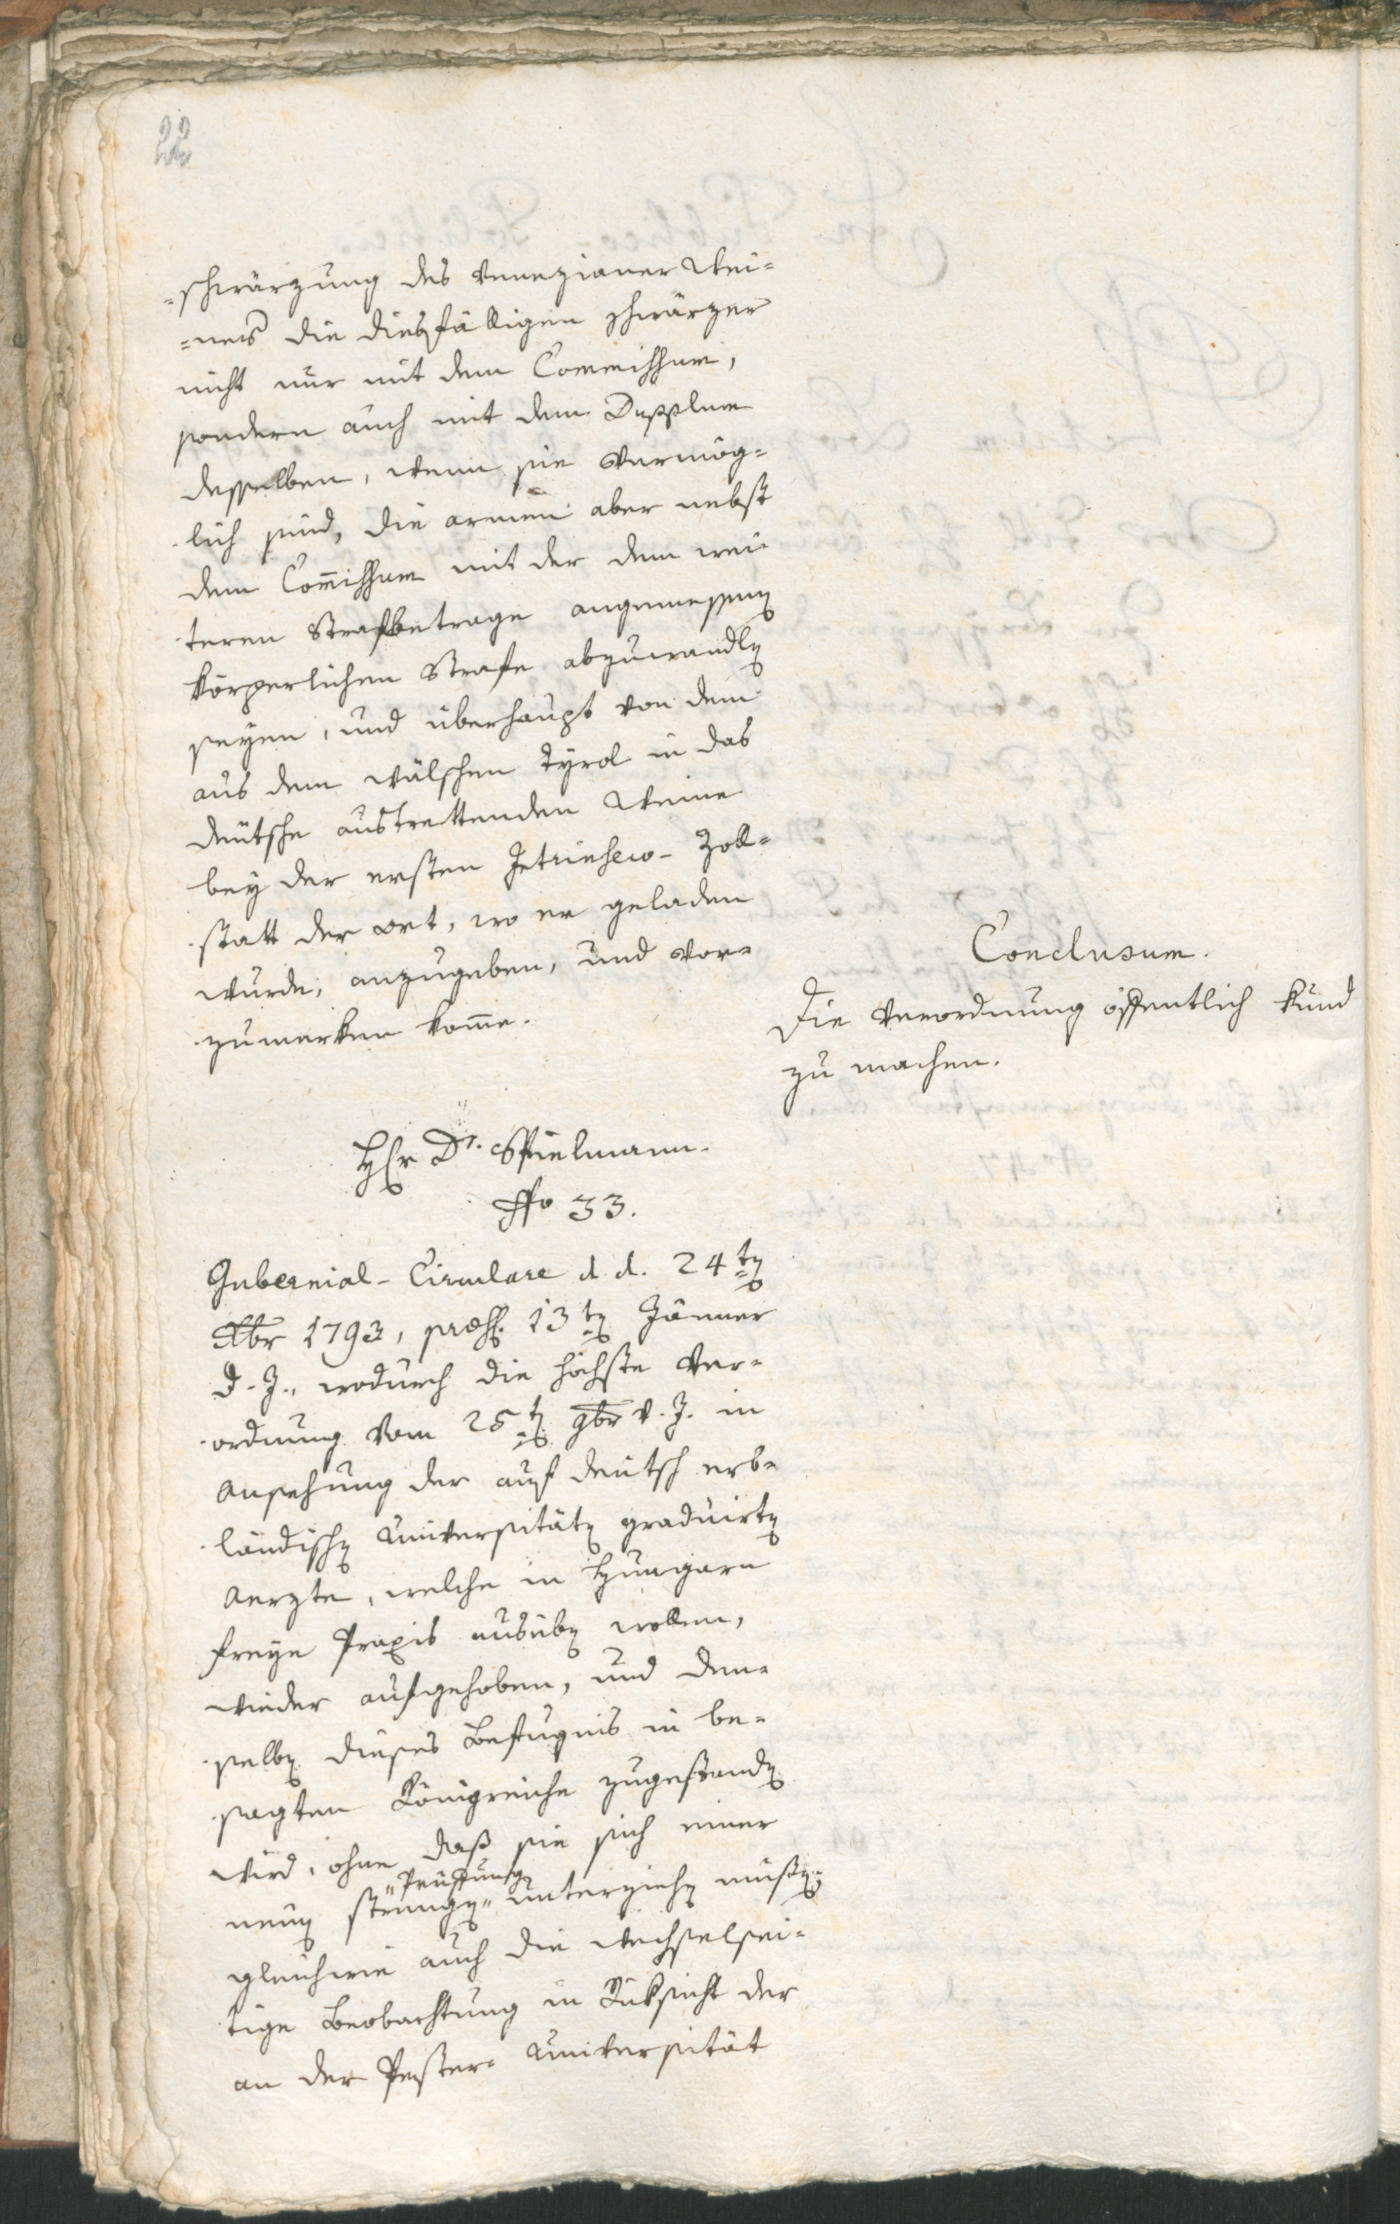 22
=schwärzung des Venezianer Wei=
=nes die diesfälligen Schwärzer
nicht nur mit dem Commissum,
sondern auch mit dem Dupplum
desselben, wenn sie vermög=
lich sind, die armen aber nebst
dem Com̄issum mit der dem wei=
teren Strafbetrage angemessenen
körperlichen Strafe abzuwandlen
seyen, und überhaupt von dem
aus dem wälschen Tyrol in das
deutsche austrettenden Weine
bey der ersten Zoll=
statt der Ort, wo er geladen
wurde, anzugeben, und vor=
zumerken kom̄e.
Conclusum.
Die Verordnung öffentlich kund
zu machen.
Hr Dr. Spielmann.
No 33.
Gubernial-Circulare d. d. 24ten
Xbr 1793, praes. 13ten Jänner
d. J., wodurch die höchste Ver=
ordnung vom 25ten 9br v. J. in
Ansehung der auf deutsch erb=
ländischen Universitäten graduirten
Aerzte, welche in Hungarn
freye Praxis ausüben wollen,
wieder aufgehoben, und den=
selben dieses Befugnis in be=
sagten Königreiche zugestanden
wird, ohne daß sie sich einer
"Prüffung"
neuen strengen" unterziehen müßen;
gleichwie auch die wechselsei=
tige Beobachtung in Rüksicht der
an der Pester= Universität